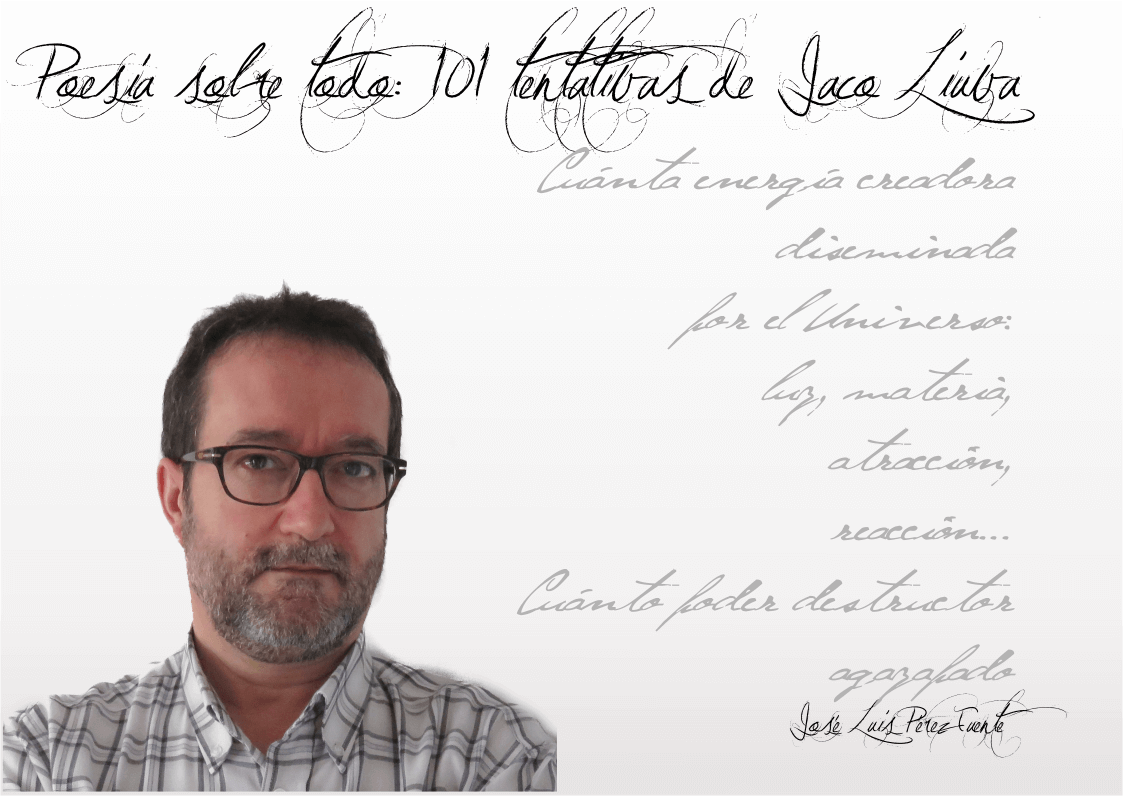 Poesía sobre todo: 101 tentativas de Jaco Liuva
Cuánta energía creadora
diseminada
por el Universo:
luz, materia,
atracción,
reacción...
Cuánto poder destructor
agazapado
José Luis Pérez Fuente